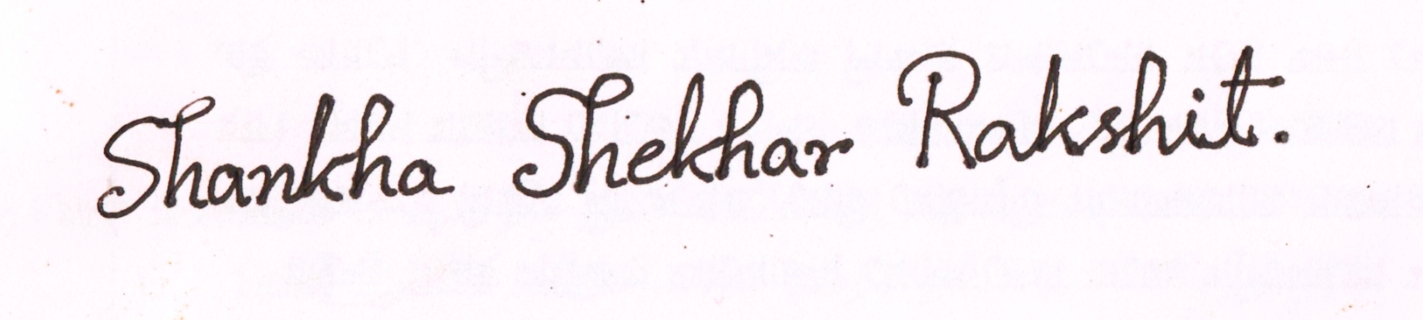 Shankha Shekhar Rakshit.